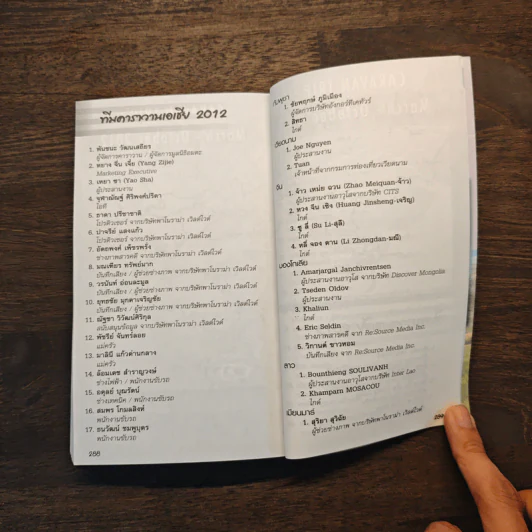 ทีมคาราวานเอเชีย 2012
1. พันชนะ วัฒนเสถียร
ผู้จัดการคาราวาน / ผู้จัดการมูลนิธิขยะ
2. หยาง จื่น เจี๋ย (Yang Zijie)
Marketing Executive
3. เหยา ชา (Yao Sha)
ผู้ประสานงาน
4. จุฬามณีษฐ์ ศิริพงศ์ปรีดา
ไอที
5. ธาดา ปรีชาชาติ
โปรดิวเซอร์ จากบริษัทพาโนราม่า เวิลด์ไวด์
6. ปาจรีย์ แสงแก้ว
โปรดิวเซอร์ จากบริษัทพาโนราม่า เวิลด์ไวด์
7. อัตถพงศ์ เพ็ชรพรั่ง
ช่างภาพสารคดี จากบริษัทพาโนราม่า เวิลด์ไวด์
8. มณเฑียร ทรัพย์มาก
บันทึกเสียง / ผู้ช่วยช่างภาพ จากบริษัทพาโนราม่า เวิลด์ไวด์
9. วรนันท์ อ่อนละมูล
บันทึกเสียง / ผู้ช่วยช่างภาพ จากบริษัทพาโนราม่า เวิลด์ไวด์
10. ยุทธชัย มุกดาเจริญชัย
บันทึกเสียง / ผู้ช่วยช่างภาพ จากบริษัทพาโนราม่า เวิลด์ไวด์
11. ณัฐชา วิวัฒน์ศิริกุล
สนับสนุนข้อมูล จากบริษัทพาโนราม่า เวิลด์ไวด์
12. พัชรีย์ จันทร์ลอย
แม่ครัว
13. มาลินี แก้วด่านกลาง
แม่ครัว
14. ล้อมเดช สำราญวงษ์
ช่างไฟฟ้า / พนักงานขับรถ
15. อดุลย์ บุณรัตน์
ช่างเทคนิค / พนักงานขับรถ
16. สมพร โกมลสิงห์
พนักงานขับรถ
17. ธนวัฒน์ ชมพูบุตร
พนักงานขับรถ
288
กัมพูชา
1. ชัยพฤกษ์ ภูมิเมือง
ผู้จัดการบริษัทอังกอร์ทีเคทัวร์
2. สิทธา
ไกด์
เวียดนาม
1. Joe Nguyen
ผู้ประสานงาน
2. Tuan
เจ้าหน้าที่จากกรมการท่องเที่ยวเวียดนาม
จีน
1. จ้าว เหม่ย ฉวน (Zhao Meiquan-จ้าว)
ผู้ประสานงานอาวุโสจากบริษัท CITS
2. หวง จิน เซิง (Huang Jinsheng-เจริญ)
ไกด์
3. ซู ลี่ (Su Li-สุลี)
ไกด์
4. หลี่ จอง ดาน (Li Zhongdan-มณี)
ไกด์
มองโกเลีย
1. Amarjargal Janchivrentsen
ผู้ประสานงานอาวุโส จากบริษัท Discover Mongolia
2. Tseden Oldov
ผู้ประสานงาน
3. Khaliun
ไกด์
4. Eric Seldin
ช่างภาพสารคดี จาก Re:Source Media Inc.
5. วิกานต์ ขาวทอม
บันทึกเสียง จาก Re:Source Media Inc.
ลาว
1. Bounthieng SOULIVANH
ผู้ประสานงานอาวุโสจากบริษัท Inter Lao
2. Khamparn MOSACOU
ไกด์
เมียนมาร์
1. สุริยา สุวิฉัย
ผู้ช่วยช่างภาพ จากบริษัทพาโนราม่า เวิลด์ไวด์